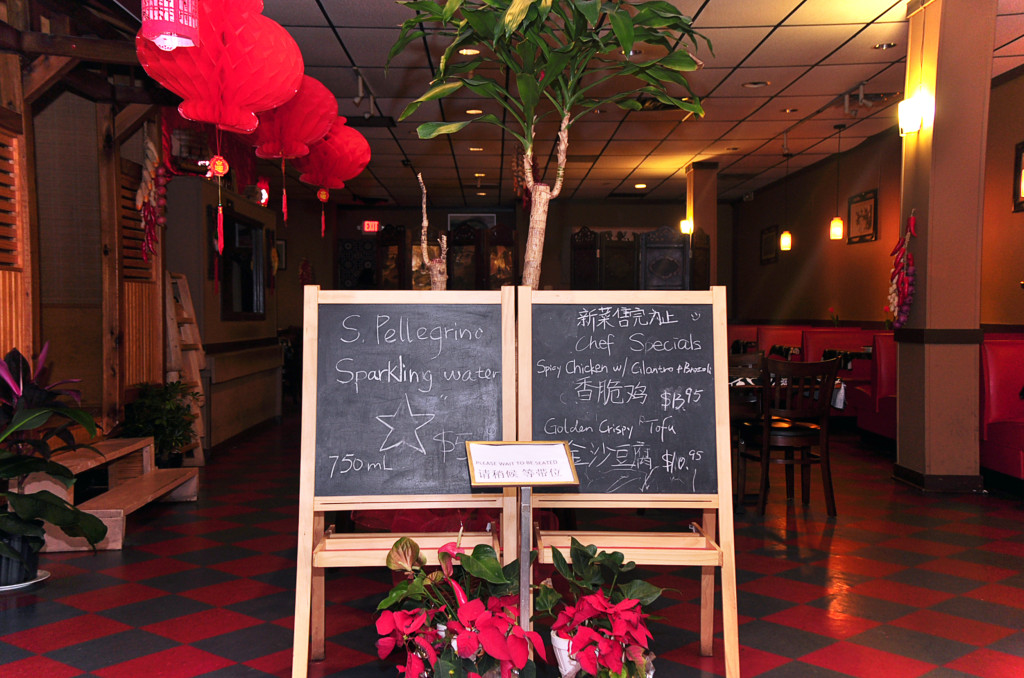 EXIT
S. Pellegrino
Sparkling water
750 mL
新菜售完为止
Chef Specials
Spicy Chicken w/ Cilantro + Broccoli
香脆鸡 $13.95
Golden Crispy Tofu
金沙豆腐 $10.95
PLEASE WAIT TO BE SEATED
请稍候 等带位